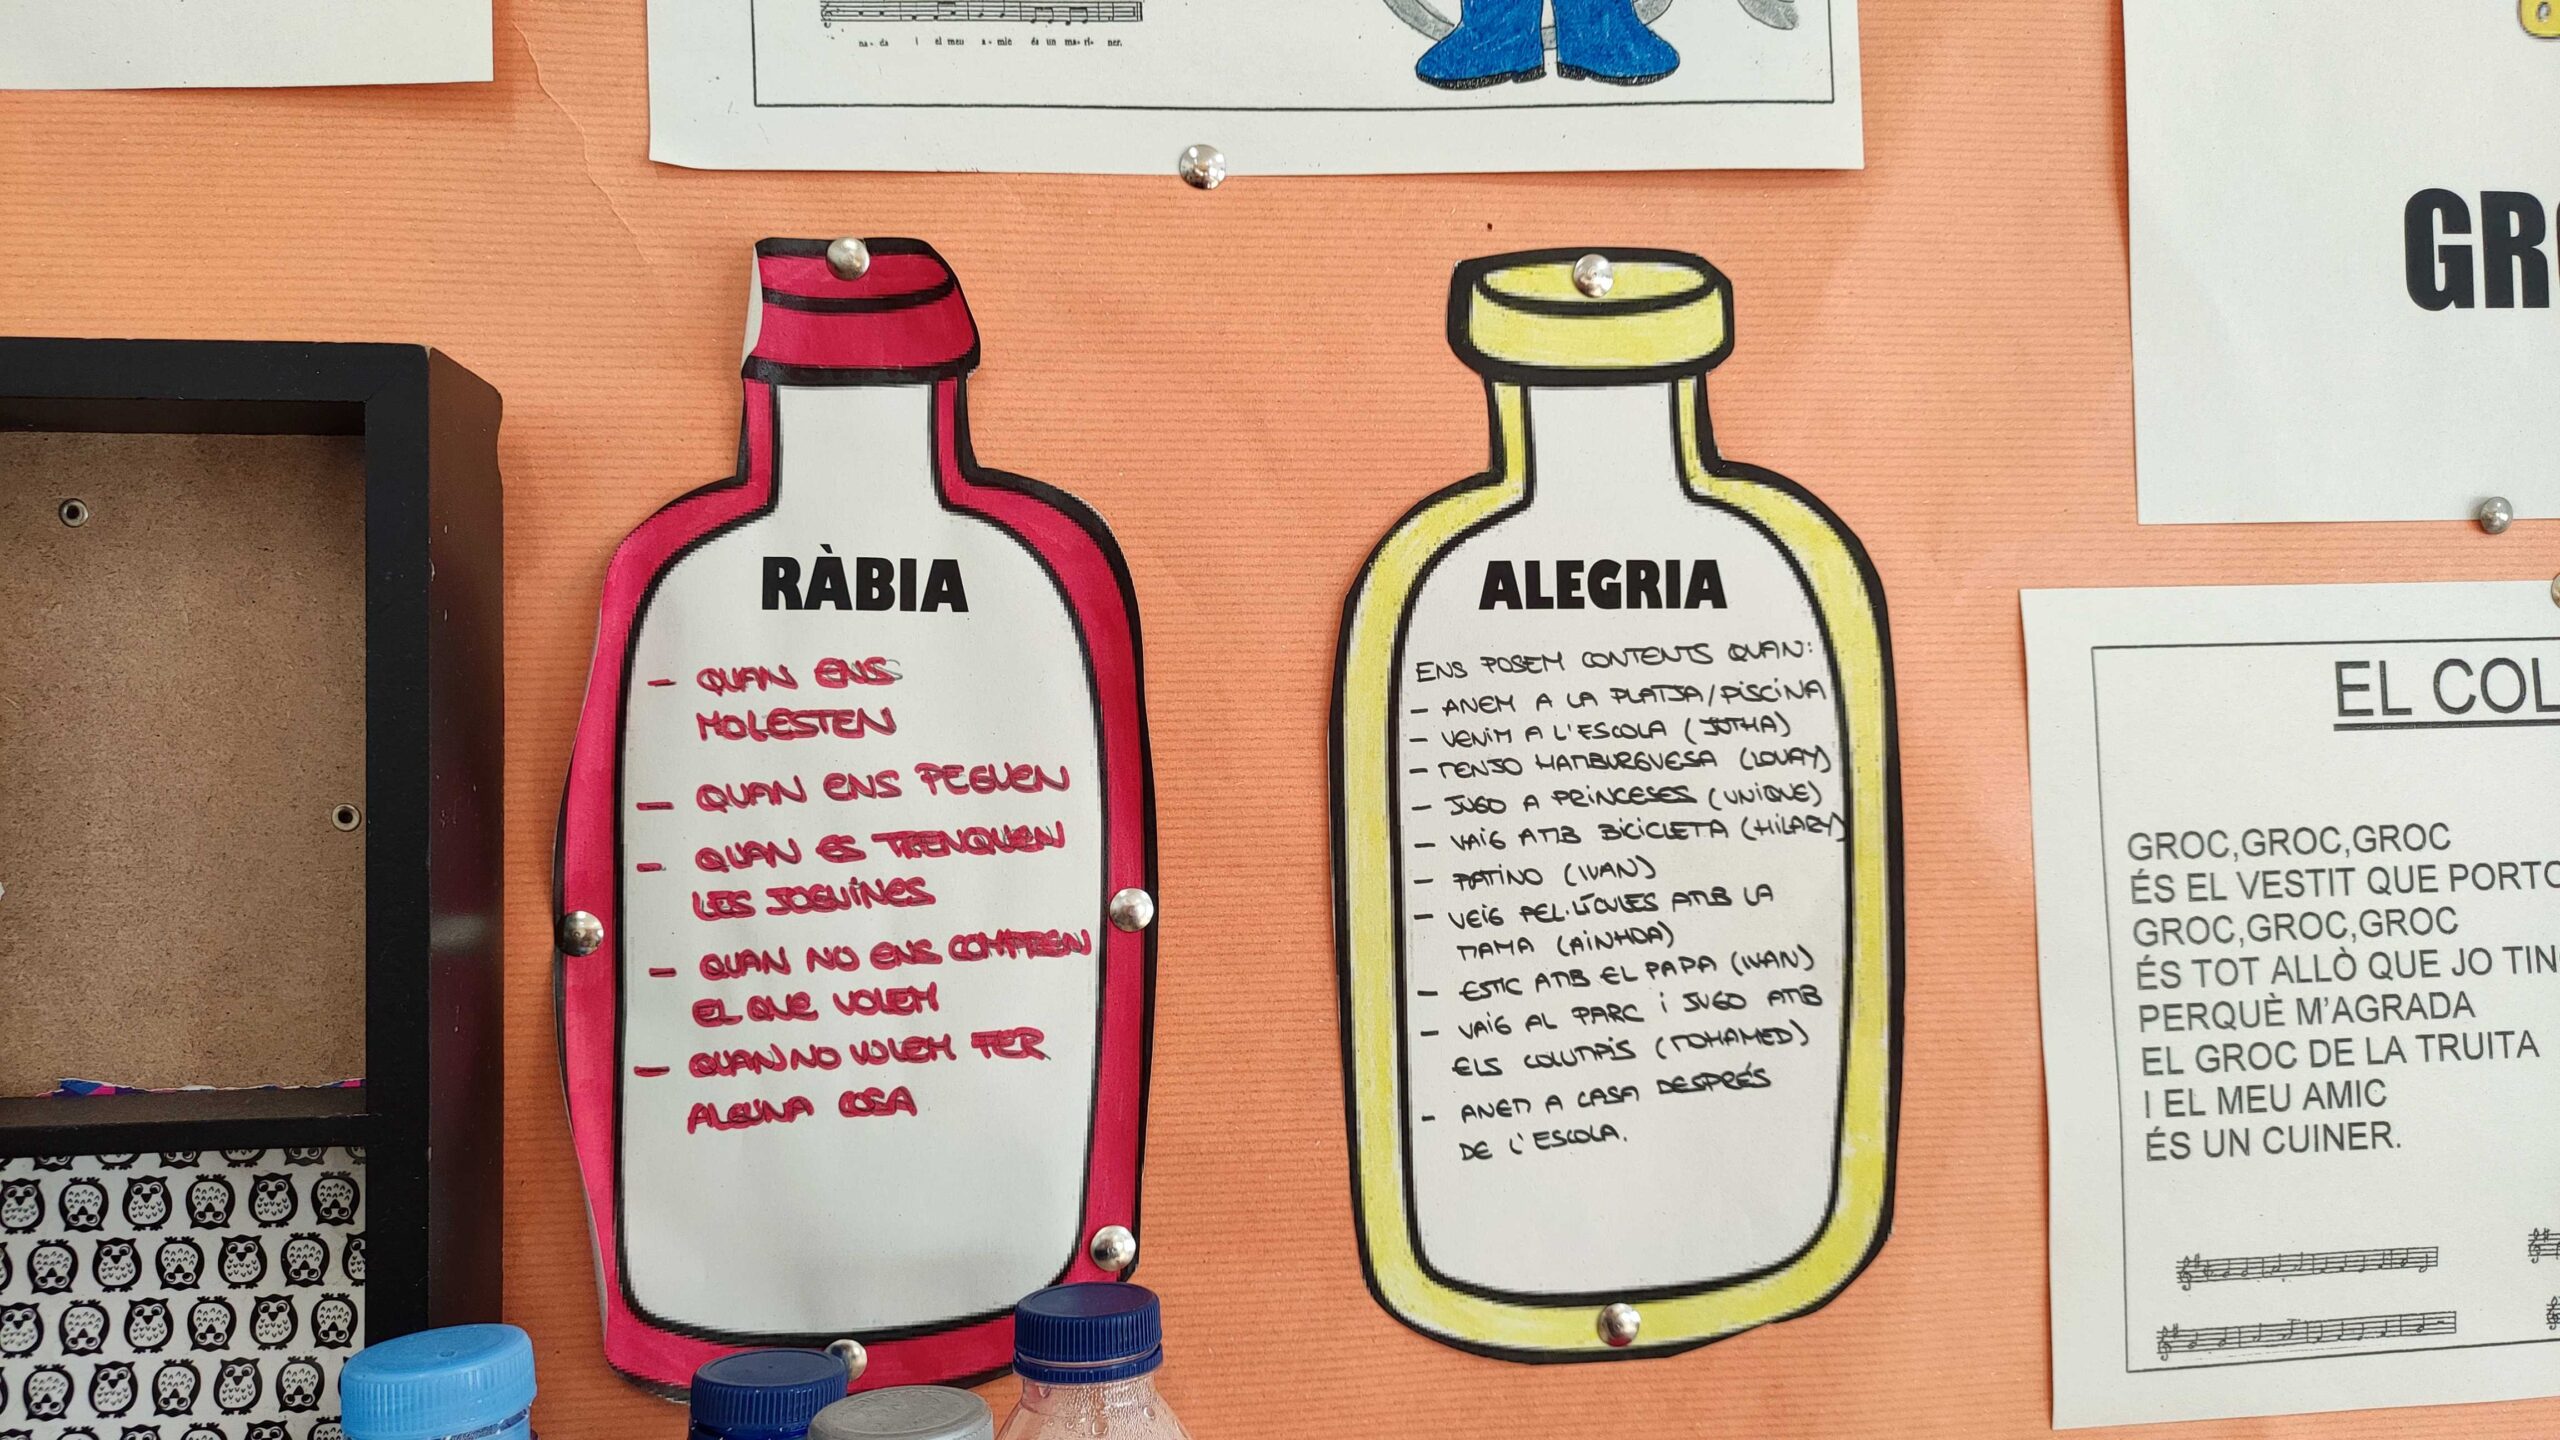 na-da i el meu a-mic és un ma-ri-ner.
RÀBIA
- QUAN ENS
MOLESTEN
- QUAN ENS PEGUEN
- QUAN ES TRENQUEN
LES JOGUINES
- QUAN NO ENS COMPREN
EL QUE VOLEM
- QUAN NO VOLEM FER
ALGUNA COSA
ALEGRIA
ENS POSEM CONTENTS QUAN:
- ANEM A LA PLATJA/PISCINA
- VENIM A L'ESCOLA (JUTHA)
- MENJO HAMBURGUESA (LOUAY)
- JUGO A PRINCESES (UNIQUE)
- VAIG AMB BICICLETA (HILARY)
- PATINO (IVAN)
- VEIG PEL·LÍCULES AMB LA
MAMA (AINHOA)
- ESTIC AMB EL PAPA (IVAN)
- VAIG AL PARC I JUGO AMB
ELS COLUMPIS (MOHAMED)
- ANEM A CASA DESPRÉS
DE L'ESCOLA.
GRO
EL COL
GROC,GROC,GROC
ÉS EL VESTIT QUE PORTO
GROC,GROC,GROC
ÉS TOT ALLÒ QUE JO TIN
PERQUÈ M'AGRADA
EL GROC DE LA TRUITA
I EL MEU AMIC
ÉS UN CUINER.